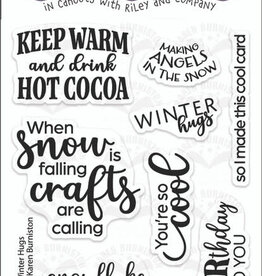 in cahoots with Riley and Company
KEEP WARM
and drink
HOT COCOA
MAKING
ANGELS
IN THE SNOW
WINTER
hugs
so I made this cool card
When
snow is
falling
crafts
are
calling
You're so
cool
Winter Hugs
Karen Burniston